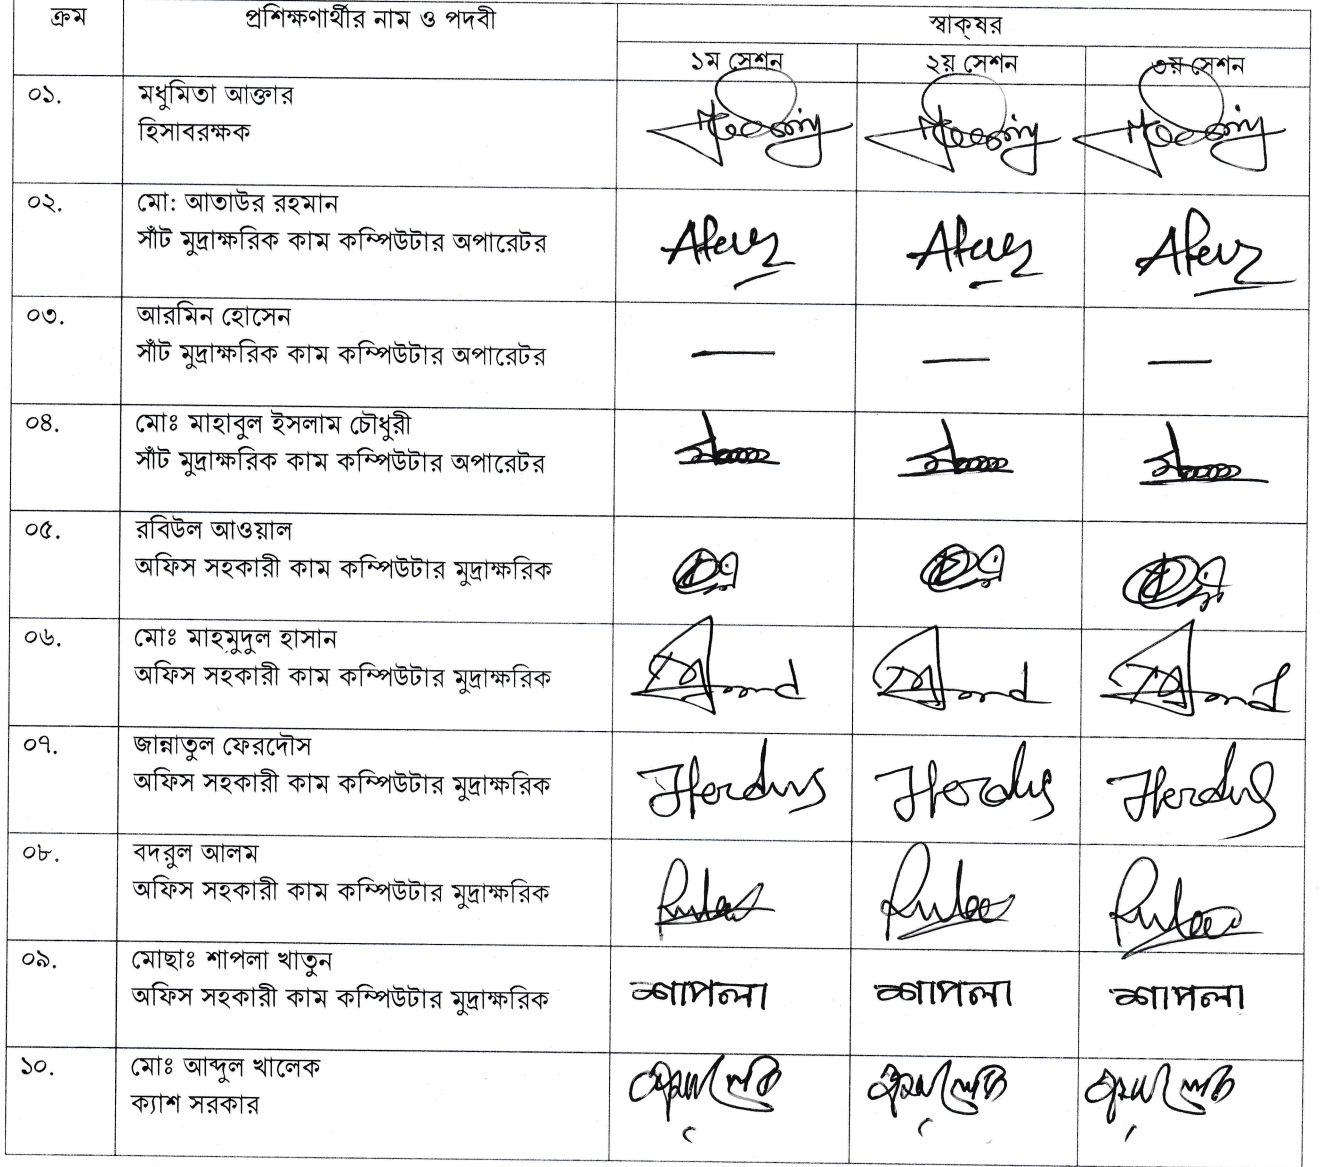 ক্রম প্রশিক্ষণার্থীর নাম ও পদবী স্বাক্ষর
১ম সেশন ২য় সেশন ৩য় সেশন
০১. মধুমিতা আক্তার
হিসাবরক্ষক
০২. মো: আতাউর রহমান
সাঁট মুদ্রাক্ষরিক কাম কম্পিউটার অপারেটর
০৩. আরমিন হোসেন
সাঁট মুদ্রাক্ষরিক কাম কম্পিউটার অপারেটর
০৪. মোঃ মাহাবুল ইসলাম চৌধুরী
সাঁট মুদ্রাক্ষরিক কাম কম্পিউটার অপারেটর
০৫. রবিউল আওয়াল
অফিস সহকারী কাম কম্পিউটার মুদ্রাক্ষরিক
০৬. মোঃ মাহমুদুল হাসান
অফিস সহকারী কাম কম্পিউটার মুদ্রাক্ষরিক
০৭. জান্নাতুল ফেরদৌস
অফিস সহকারী কাম কম্পিউটার মুদ্রাক্ষরিক
০৮. বদরুল আলম
অফিস সহকারী কাম কম্পিউটার মুদ্রাক্ষরিক
০৯. মোছাঃ শাপলা খাতুন
অফিস সহকারী কাম কম্পিউটার মুদ্রাক্ষরিক শাপলা শাপলা শাপলা
১০. মোঃ আব্দুল খালেক
ক্যাশ সরকার